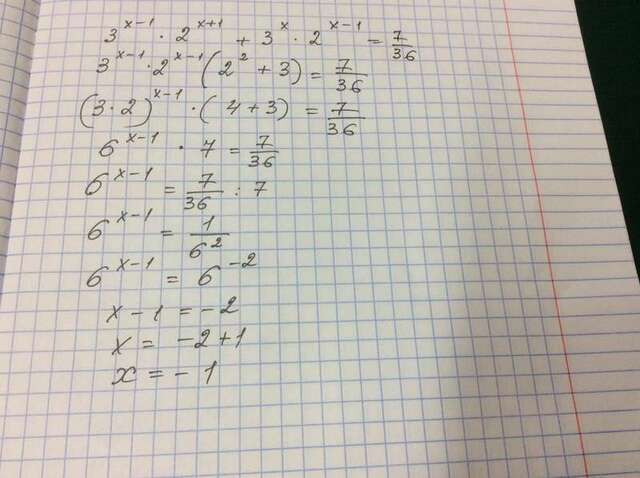 3^(x-1) · 2^(x+1) + 3^x · 2^(x-1) = 7/36
3^(x-1) · 2^(x-1) (2^2 + 3) = 7/36
(3 · 2)^(x-1) · (4 + 3) = 7/36
6^(x-1) · 7 = 7/36
6^(x-1) = 7/36 : 7
6^(x-1) = 1/6^2
6^(x-1) = 6^(-2)
x - 1 = -2
x = -2 + 1
x = - 1